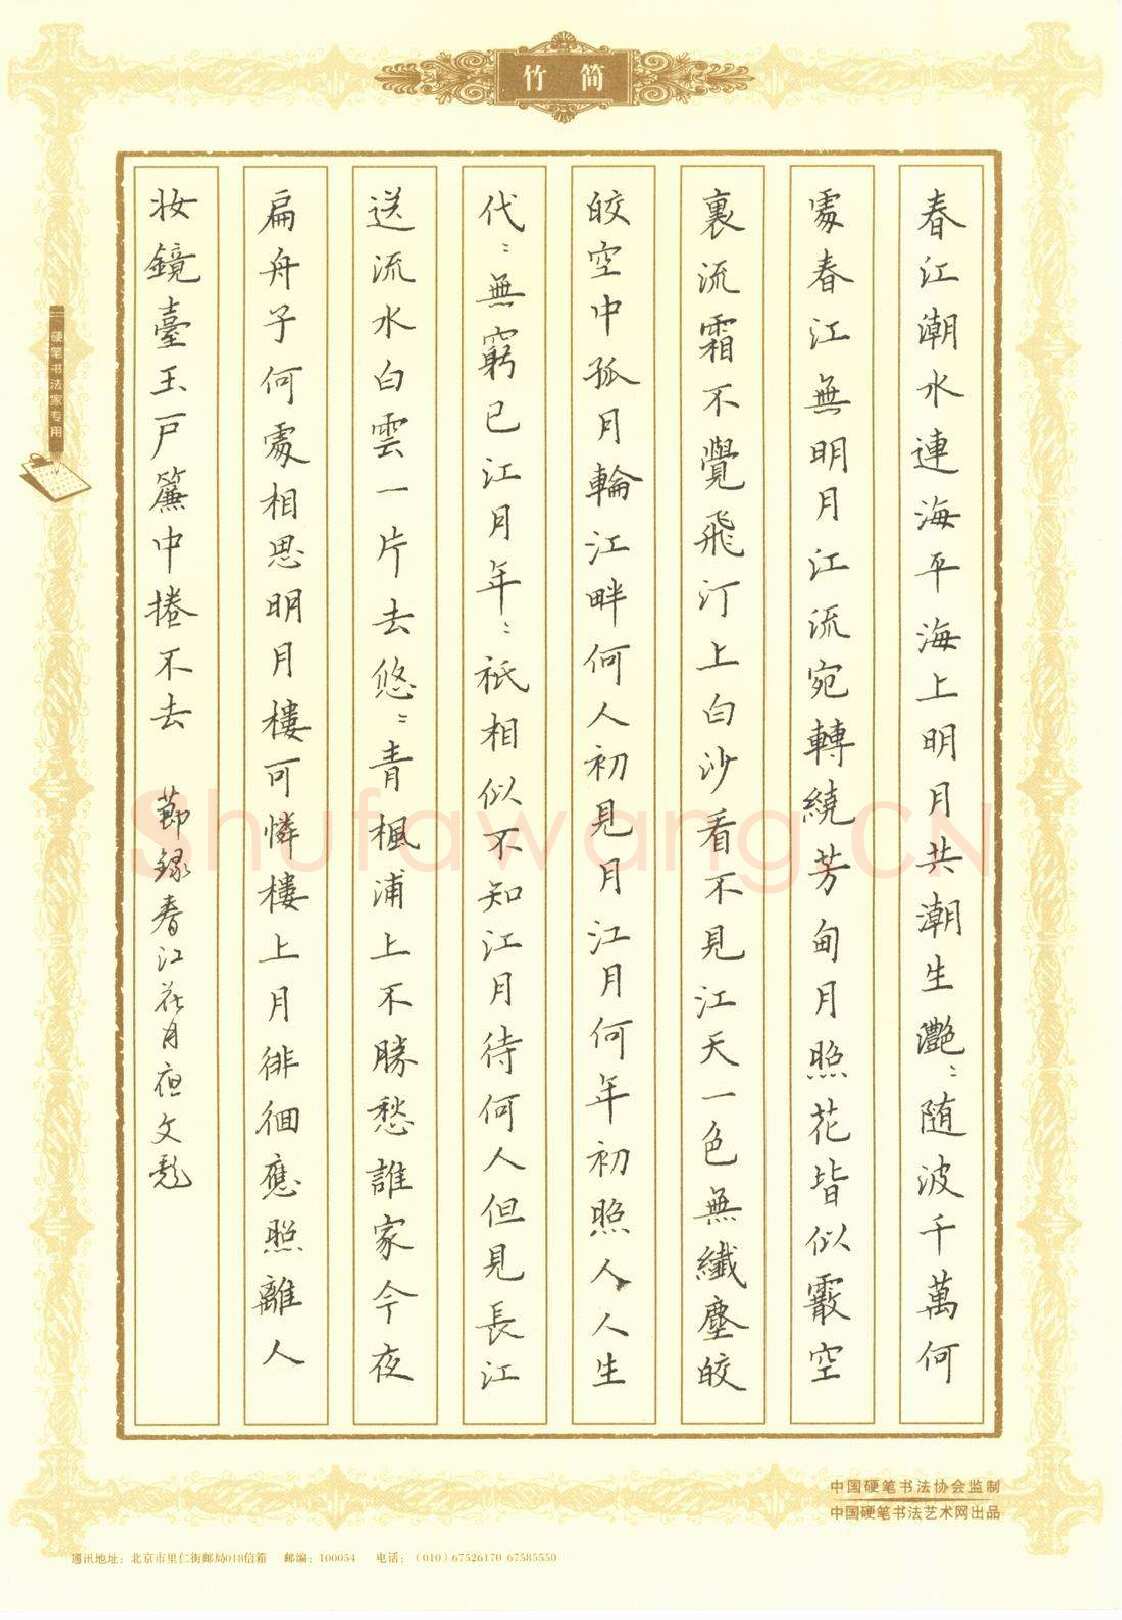 竹简
春江潮水連海平海上明月共潮生灔〻随波千萬何
處春江無明月江流宛轉繞芳甸月照花皆似霰空
裏流霜不覺飛汀上白沙看不見江天一色無纖塵皎
皎空中孤月輪江畔何人初見月江月何年初照人人生
代〻無窮已江月年〻祇相似不知江月待何人但見長江
送流水白雲一片去悠〻青楓浦上不勝愁誰家今夜
扁舟子何處相思明月樓可憐樓上月徘徊應照離人
妝鏡臺玉戶簾中捲不去 節錄春江花月夜文彪
硬笔书法家专用
Shufawang.CN
中国硬笔书法协会监制
中国硬笔书法艺术网出品
通讯地址：北京市里仁街邮局018信箱 邮编：100054 电话：（010）67526170 67585550